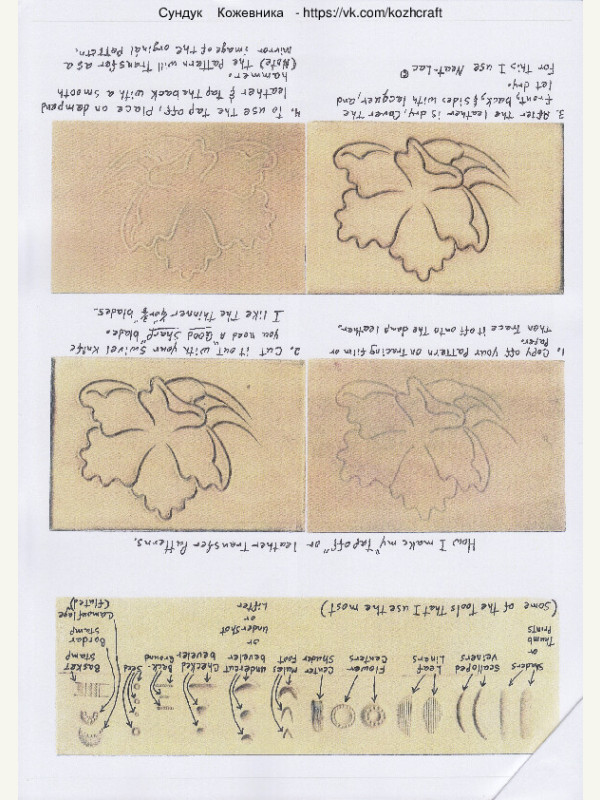 Сундук Кожевника - https://vk.com/kozhcraft
Shaders
or
Thumb
Prints
Scalloped
veiners
Leaf
Liners
Flower
Centers
Center
Shader
Mules
Foot
undercut
beveler
or
undershot
or
Lifter
Checked
beveler
Back-
ground
Seeds
Basket
Stamp
Bordar
Stamp
Camouflage
(fluted)
(Some of the Tools That I use the most)
How I make my "Tap off" or leather Transfer Patterns.
1. Copy off your Pattern on Tracing film or
Paper.
Then Trace it off onto The damp leather.
2. Cut it out with your Swivel Knife
you need A Good "Sharp" blade.
I like The Thinner blades.
3. After The leather is dry, Cover The
Front, back, & sides with lacquer, and
let dry.
For This I use Neat-Lac ©
4. To use The Tap off, Place on dampend
leather & Tap The back with a smooth
hammer.
(Note) The Pattern will Transfer as a
mirror image of the original Pattern.